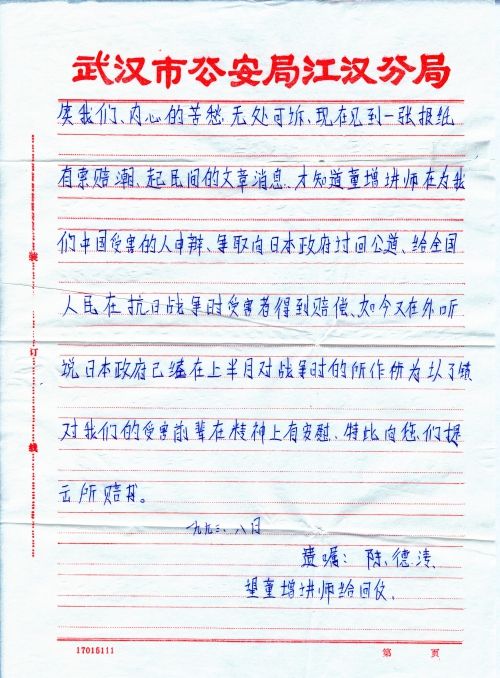 武汉市公安局江汉分局
笑我们、内心的苦愁.无处可诉、现在见到一张报纸
有索赔潮、起民间的文章消息.才知道童增讲师在为我
们中国受害的人申辩、争取向日本政府讨回公道、给全国
人民在抗日战争时受害者得到赔偿、如今又在外听
说日本政府已经在上半月对战争时的所作所为认了错
对我们的受害前辈在精神上有安慰、特此向您们提
云所赔书。
一九九三、八日
遗嘱：陈德涛
望童增讲师给回仪、
装
订
线
17015111
第 页